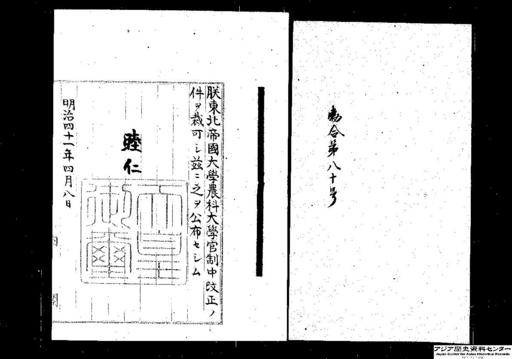 勅令第八十号
朕東北帝國大學農科大學官制中改正ノ
件ヲ裁可シ茲ニ之ヲ公布セシム
睦仁
天皇御璽
明治四十一年四月八日
内閣
アジア歴史資料センター
Japan Center for Asian Historical Records